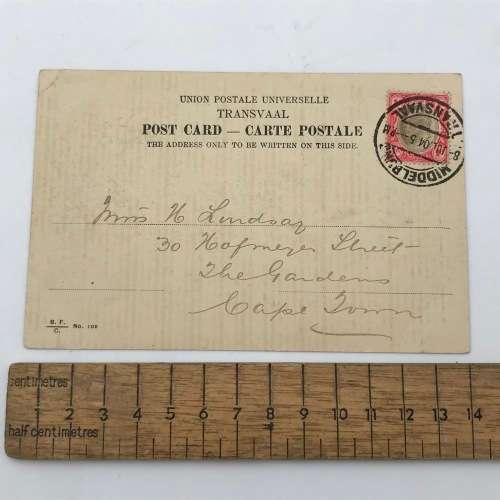 UNION POSTALE UNIVERSELLE
TRANSVAAL
POST CARD — CARTE POSTALE
THE ADDRESS ONLY TO BE WRITTEN ON THIS SIDE.
MIDDELBURG
TRANSVAAL
Miss H Lindsay
30 Hofmeyer Street
The Gardens
Cape Town
B. F.
C. No. 102
centimetres
1 2 3 4 5 6 7 8 9 10 11 12 13 14
half centimetres